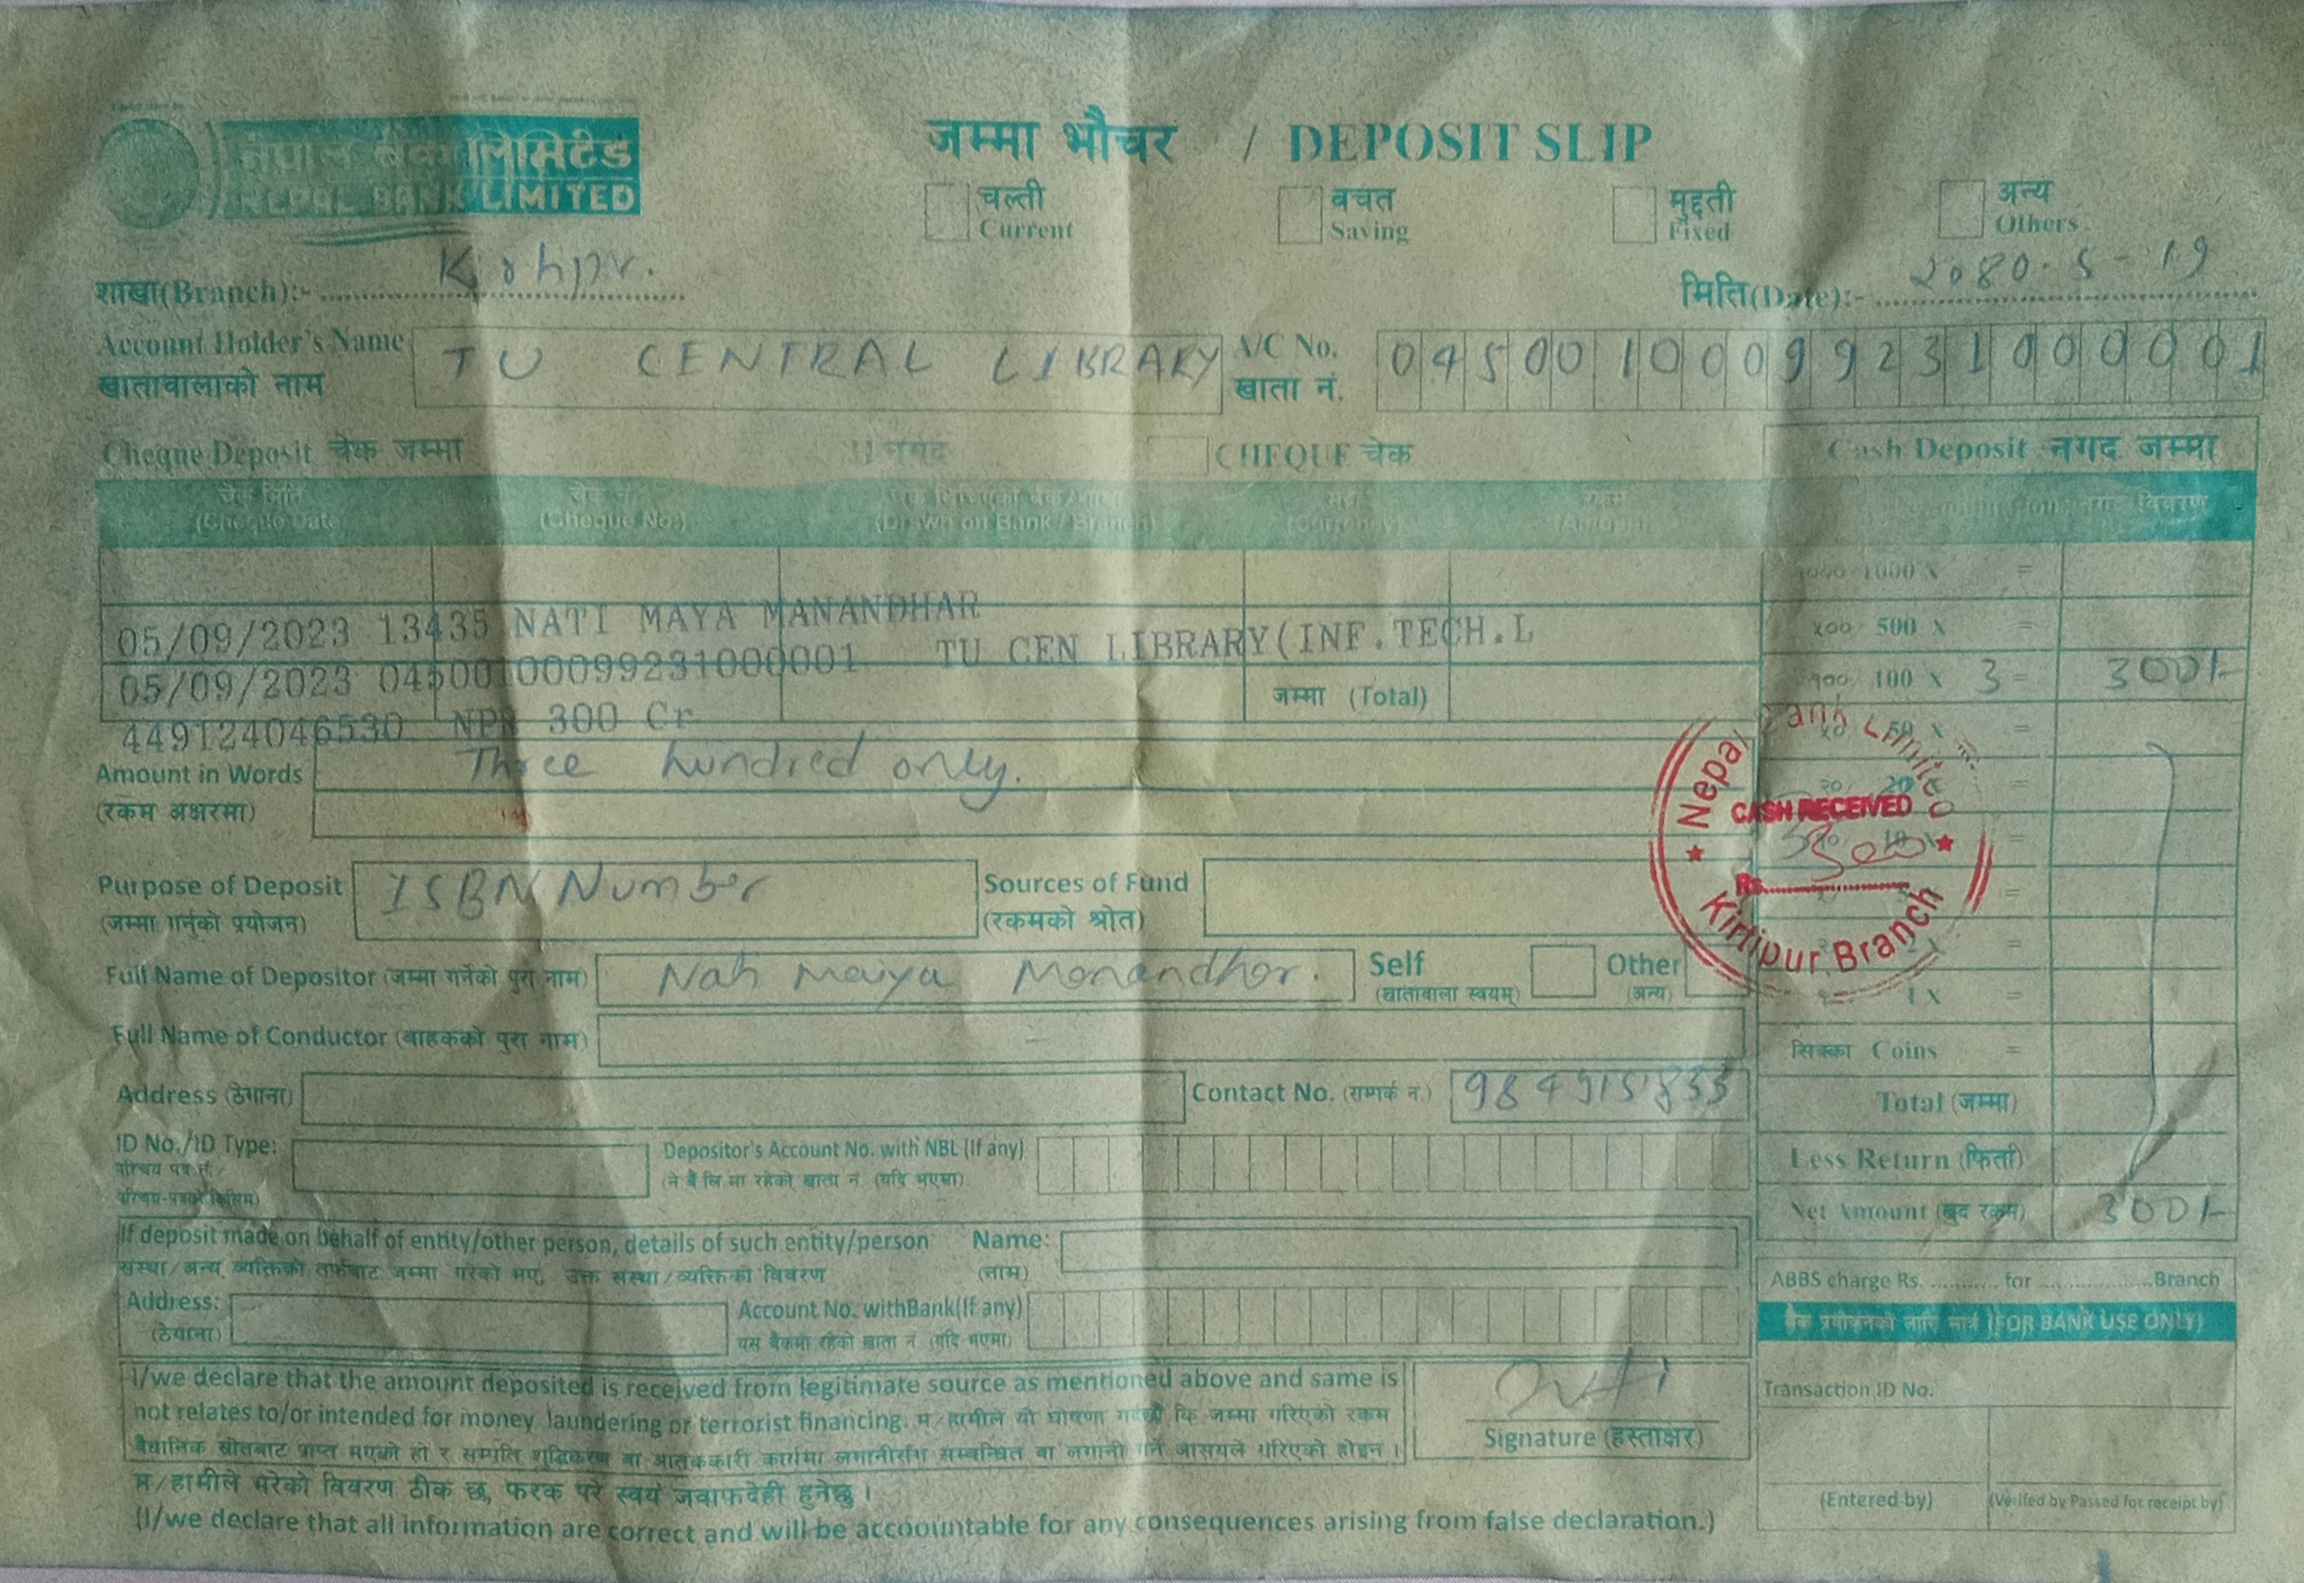 नेपाल बैंक लिमिटेड
NEPAL BANK LIMITED
जम्मा भौचर / DEPOSIT SLIP
चल्ती Current
बचत Saving
मुद्दती Fixed
अन्य Others
शाखा(Branch):-
मिति(Date):- 2080-5-19
Account Holder's Name TU CENTRAL LIBRARY A/C No. 04500100099231000001
खातावालाको नाम खाता नं.
Cheque Deposit चेक जम्मा नगद CHEQUE चेक Cash Deposit नगद जम्मा
(Cheque Date) (Cheque No.) (Drawn on Bank / Branch) (Currency) (Amount) विवरण
1000 X =
05/09/2023 13435 NATI MAYA MANANDHAR
५०० 500 X =
05/09/2023 04500100099231000001 TU CEN LIBRARY(INF.TECH.L
जम्मा (Total)
१०० 100 X 3 = 300/-
449124046530 NPR 300 Cr
Amount in Words Three hundred only.
(रकम अक्षरमा)
Nepal Bank Limited
CASH RECEIVED
Rs.
Kirtipur Branch
Purpose of Deposit ISBN Number Sources of Fund
(जम्मा गर्नुको प्रयोजन) (रकमको श्रोत)
Full Name of Depositor (जम्मा गर्नेको पुरा नाम) Nati Maiya Manandhar. Self (खातावाला स्वयम्) Other (अन्य)
1 X =
Full Name of Conductor (वाहकको पुरा नाम)
सिक्का Coins =
Address (ठेगाना) Contact No. (सम्पर्क नं.)
Total (जम्मा)
ID No./ID Type: Depositor's Account No. with NBL (If any)
Less Return (फिर्ता)
Net Amount (खुद रकम) 300/-
If deposit made on behalf of entity/other person, details of such entity/person Name:
संस्था/अन्य व्यक्तिको तर्फबाट जम्मा गरेको भए, उक्त संस्था/व्यक्तिको विवरण (नाम)
ABBS charge Rs. ............ for ....................Branch
Address: Account No. withBank(If any)
(ठेगाना) यस बैंकमा रहेको खाता नं (यदि भएमा)
बैंक प्रयोजनको लागि मात्र (FOR BANK USE ONLY)
I/we declare that the amount deposited is received from legitimate source as mentioned above and same is
not relates to/or intended for money laundering or terrorist financing. म/हामीले यो घोषणा गर्दछौं कि जम्मा गरिएको रकम
वैधानिक स्रोतबाट प्राप्त भएको हो र सम्पत्ति शुद्धिकरण वा आतंककारी कार्यमा लगानीसंग सम्बन्धित वा लगानी गर्ने आसयले गरिएको होइन ।
Signature (हस्ताक्षर)
Transaction ID No.
म/हामीले भरेको विवरण ठीक छ, फरक परे स्वयं जवाफदेही हुनेछु ।
(I/we declare that all information are correct and will be accoountable for any consequences arising from false declaration.)
(Entered by) (Verifed by Passed for receipt by)